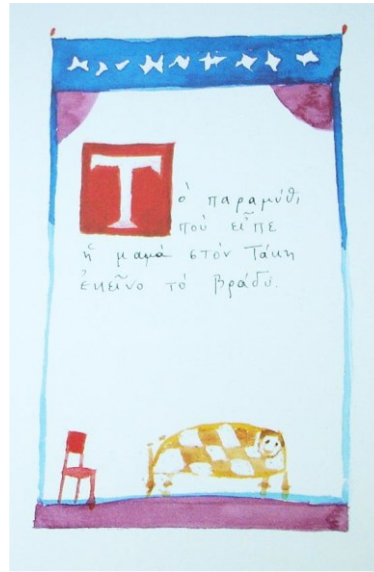 Τὸ παραμύθι
ποὺ εἶπε
ἡ μαμά στὸν Τάκη
ἐκεῖνο τὸ βράδυ.